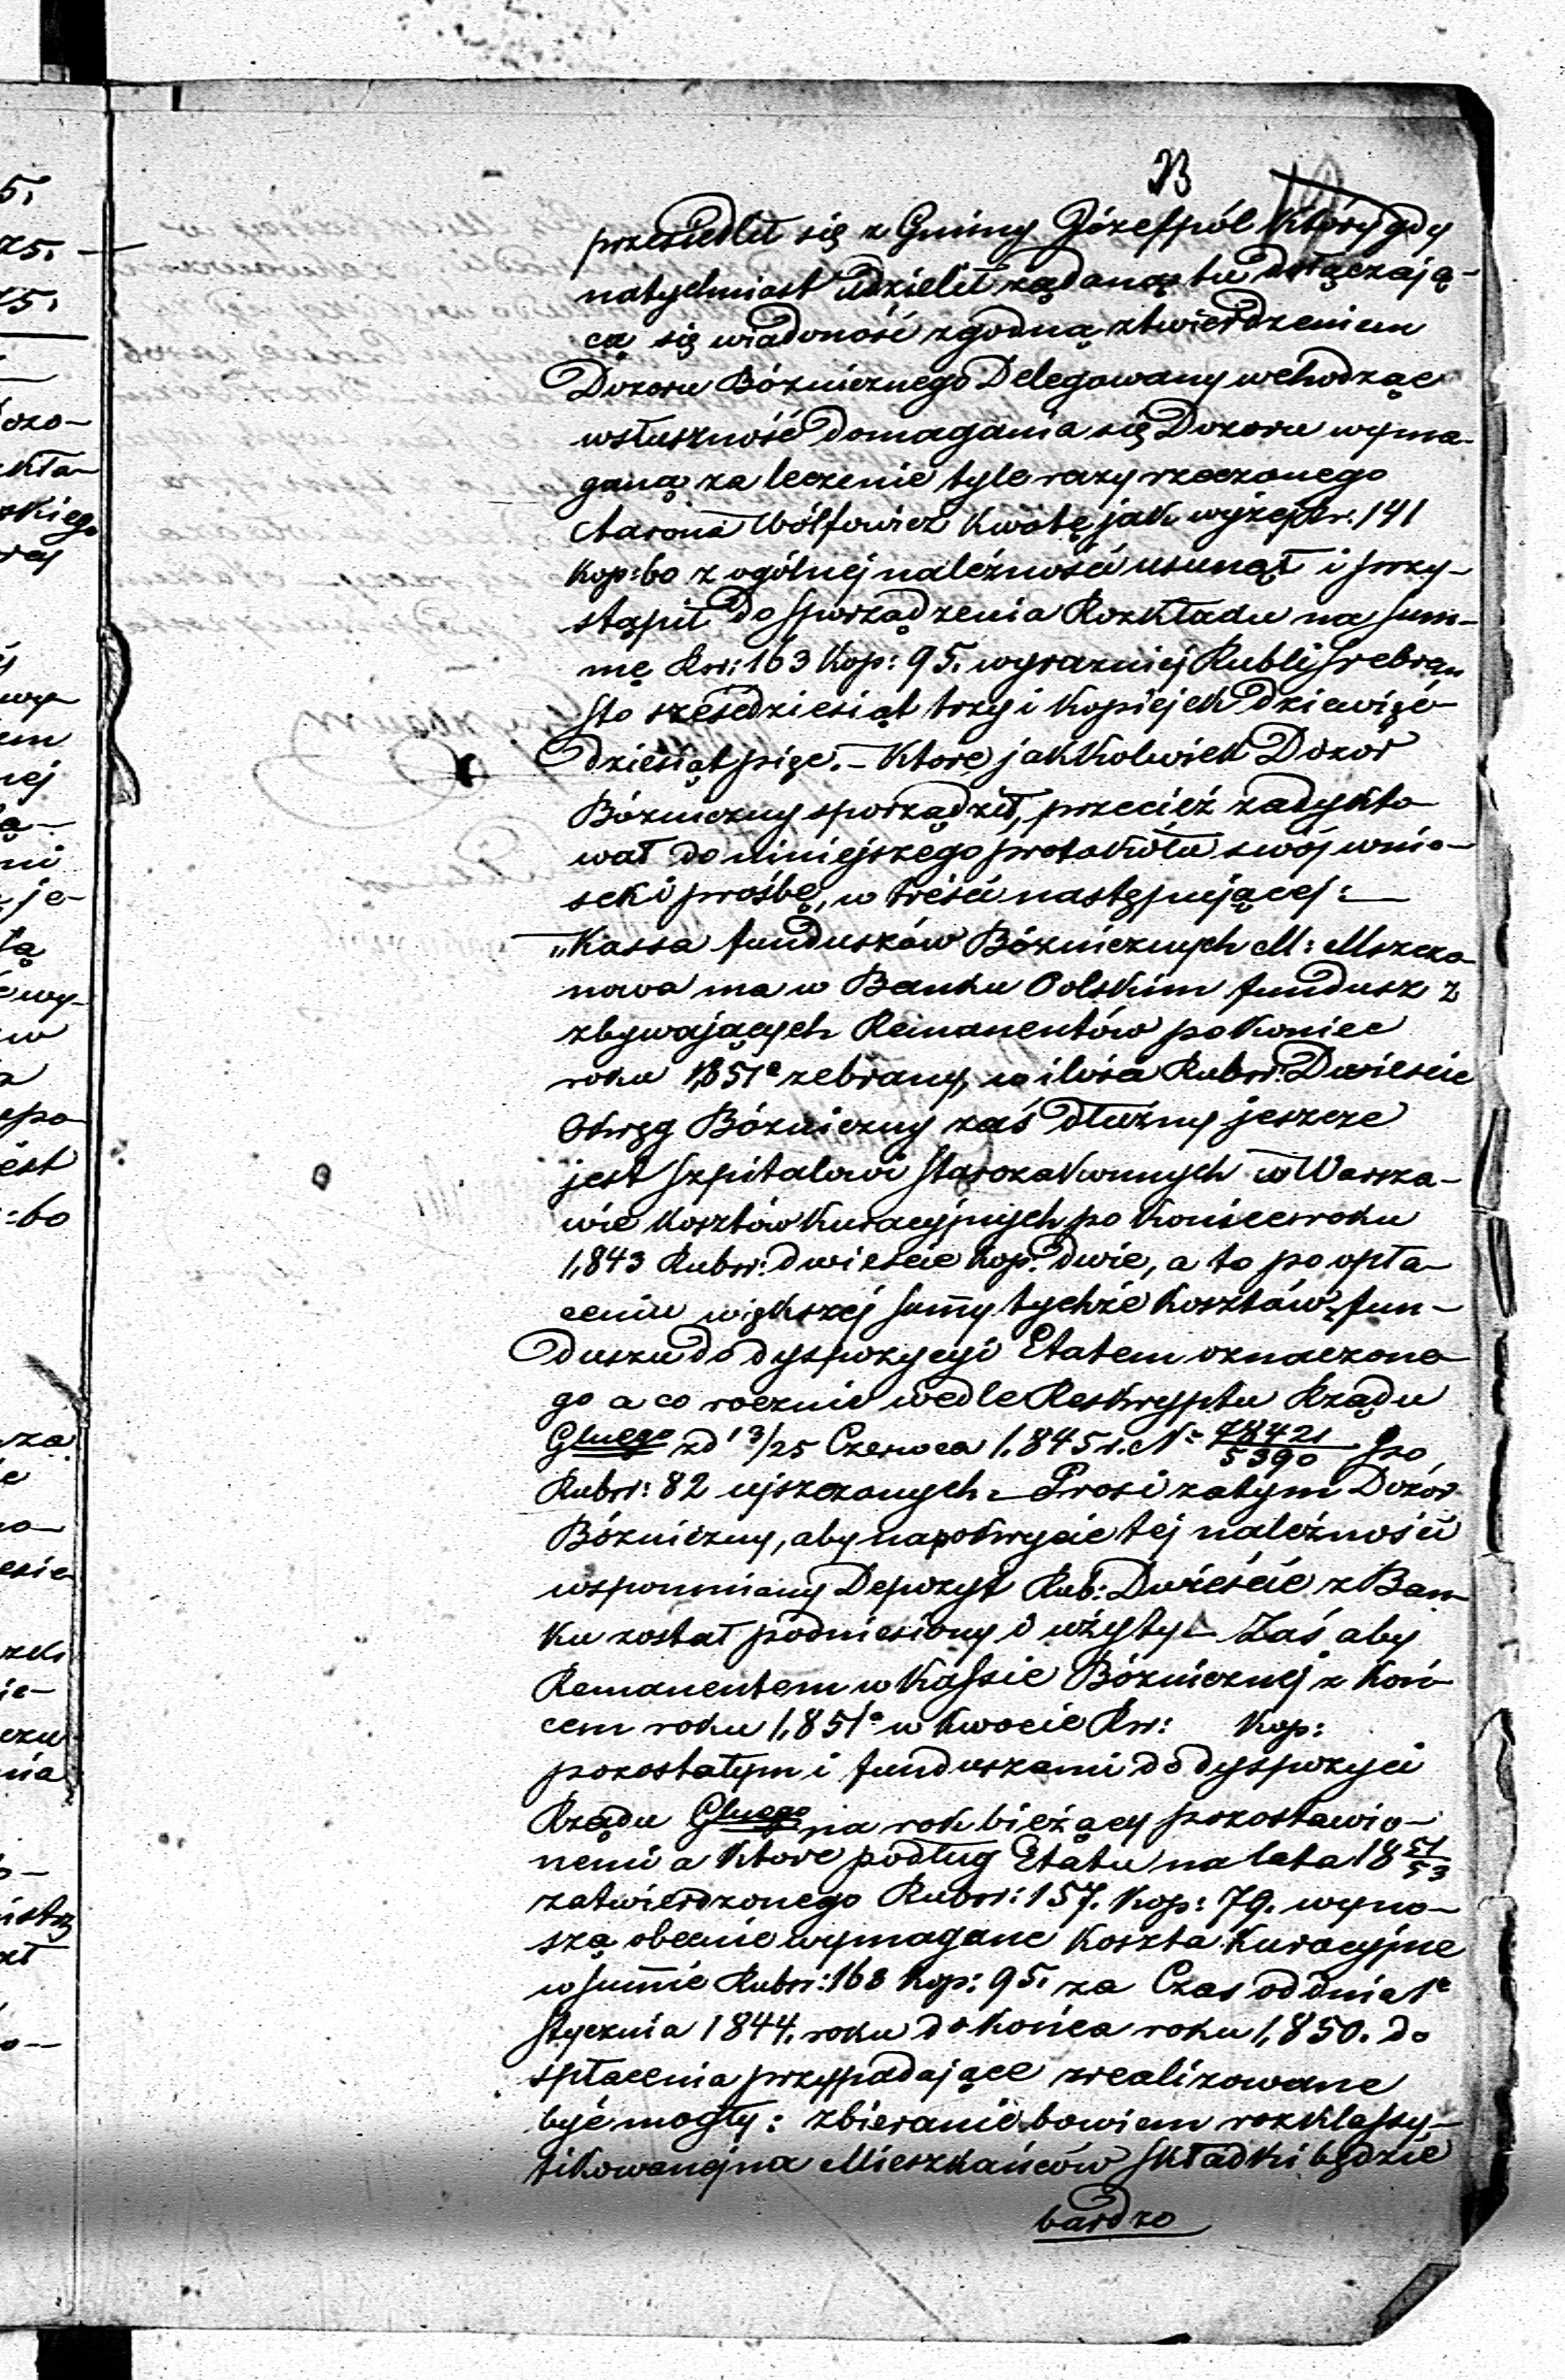 23
przesiedlił się z Gminy Józefpól który gdy
natychmiast udzielił żądaną tu dołączają-
cą się wiadomość zgodną ztwierdzeniem
Dozoru Bóżniczego Delegowany wchodząc
wsłuszność domagania się Dozoru wyma-
ganą za leczenie tyle razy rzeczonego
Aarona Wólfowicz Kwotę jak wyżej Rr. 141
Kop: 60 z ogólnej należności usunął i przy-
stąpił do sporządzenia Rozkładu na sum-
mę Rsr: 163 Kop: 95. wyrazniej Rubli srebrem
sto sześdziesiąt trzy i Kopiejek dziewięć
dziesiąt pięc. – Ktore jakkolwiek Dozor
Bózniczny sporządził, przecież zadykto
wał do niniejszego protokółu swój wnio-
sek i prośbę, w treści następującej: –
„Kassa funduszów Bóżnicznych M: Mszczo
nowa ma w Banku Polskim fundusz z
zbywających Remanentów po koniec
roku 1,851º zebrany, w ilości Rubsr: Dwieście
Okręg Bózniczny zaś dłużny jeszcze
jest szpitalowi starozakonnych w Warsza-
wie Kosztów Kuracyjnych po koniec roku
1,843 Rubsr: dwieście Kop: dwie, a to po opła-
ceniu większej summy tychże Kosztów z fun-
duszu do dyspozycyi Etatem oznaczone
go a co rocznie wedle Reskryptu Rządu
Gluego zd 13/25 Czerwca 1,845 r. Nº 78421/5390 po
Rubsr: 82 ujszczanych. – Prosi zatym Dozór
Bózniczny, aby na pokrycie tej należności
wspomniany Depozyt Rub: Dwieście z Ban
ku został podniesiony i użyty – Zaś aby
Remanentem w Kassie Bózniczej z koń
cem roku 1,851º w kwocie Rsr: Kop:
pozostałym i funduszami do dyspozycii
Rządu Gluego na rok bieżący pozostawio-
nemi a które podług Etatu na lata 18 51/53
zatwierdzonego Rubsr: 157. Kop: 79. wyno-
szą obecnie wymagane Koszta Kuracyjne
w summie Rubsr: 163 Kop: 95. za Czas od dnia 1º
stycznia 1844. roku do końca roku 1,850. do
spłacenia przypadające zrealizowane
być mogły: zbieranie bowiem rozklassy-
fikowanej na Mieszkańców składki będzie
bardzo